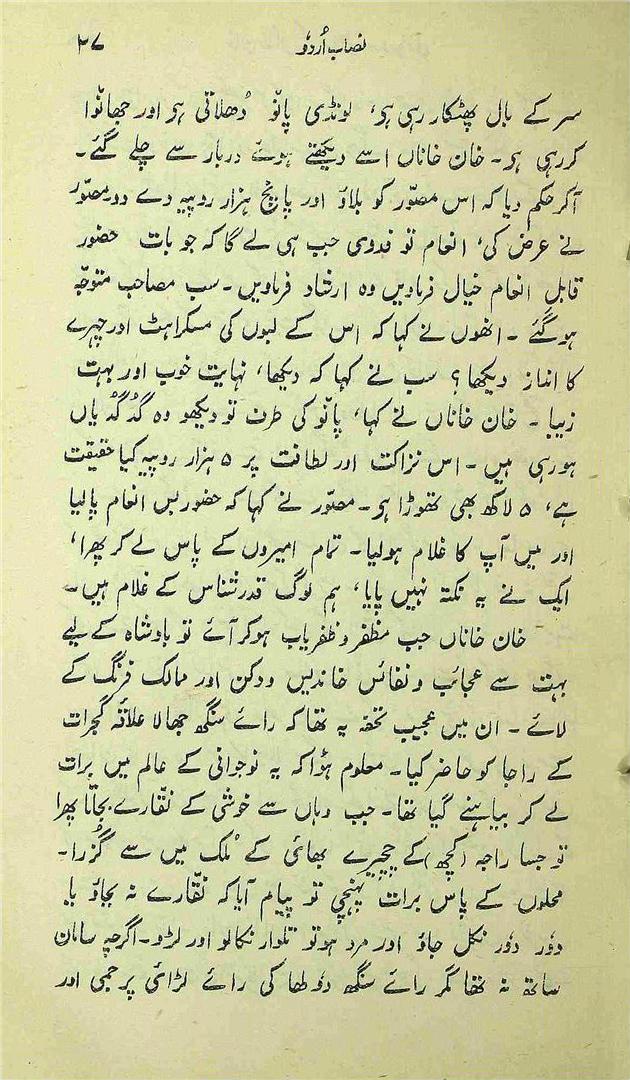 نصاب اُردو ۲۷
سر کے بال پھٹکار رہی ہو، لونڈی پانٗو دُھلاتی ہو اور جھانٗوا
کر رہی ہو۔ خان خاناں اسے دیکھتے ہوئے دربار سے چلے گئے۔
آکر حکم دیا کہ اس مصوّر کو بلاؤ اور پانچ ہزار روپیہ دے دو۔ مصوّر
نے عرض کی، انعام تو فدوی جب ہی لے گا کہ جو بات حضور
قابلِ انعام خیال فرماویں وہ ارشاد فرماویں۔ سب مصاحب متوجّہ
ہوگئے۔ انھوں نے کہا کہ اس کے لبوں کی مسکراہٹ اور چہرے
کا انداز دیکھا؟ سب نے کہا کہ دیکھا، نہایت خوب اور بہت
زیبا۔ خان خاناں نے کہا، پانٗو کی طرف تو دیکھو وہ گُدگُدیاں
ہورہی ہیں۔ اس نزاکت اور لطافت پر ۵ ہزار روپیہ کیا حقیقت
ہے، ۵ لاکھ بھی تھوڑا ہو۔ مصوّر نے کہا کہ حضور بس انعام پالیا
اور میں آپ کا غلام ہولیا۔ تمام امیروں کے پاس لے کر پھرا،
ایک نے یہ نکتہ نہیں پایا، ہم لوگ قدرشناس کے غلام ہیں۔
خان خاناں جب مظفر و ظفریاب ہوکر آئے تو بادشاہ کے لیے
بہت سے عجائب و نفائس خاندیس و دکن اور ممالک فرنگ کے
لائے۔ ان میں عجیب تحفہ یہ تھا کہ رائے سنگھ جھالا علاقۂ گجرات
کے راجا کو حاضر کیا۔ معلوم ہوٗا کہ یہ نوجوانی کے عالم میں برات
لے کر بیاہنے گیا تھا۔ جب وہاں سے خوشی کے نقّارے بجاتا پھرا
تو جسا راجہ (کچھ) کے چچیرے بھائی کے مُلک میں سے گُزرا۔
محلوں کے پاس برات پہنچی تو پیام آیا کہ نقّارے نہ بجاؤ یا
دوٗر دوٗر نکل جاؤ اور مرد ہوتو تلوار نکالو اور لڑو۔ اگرچہ سامان
ساتھ نہ تھا مگر رائے سنگھ دولھا کی رائے لڑائی پر جمی اور